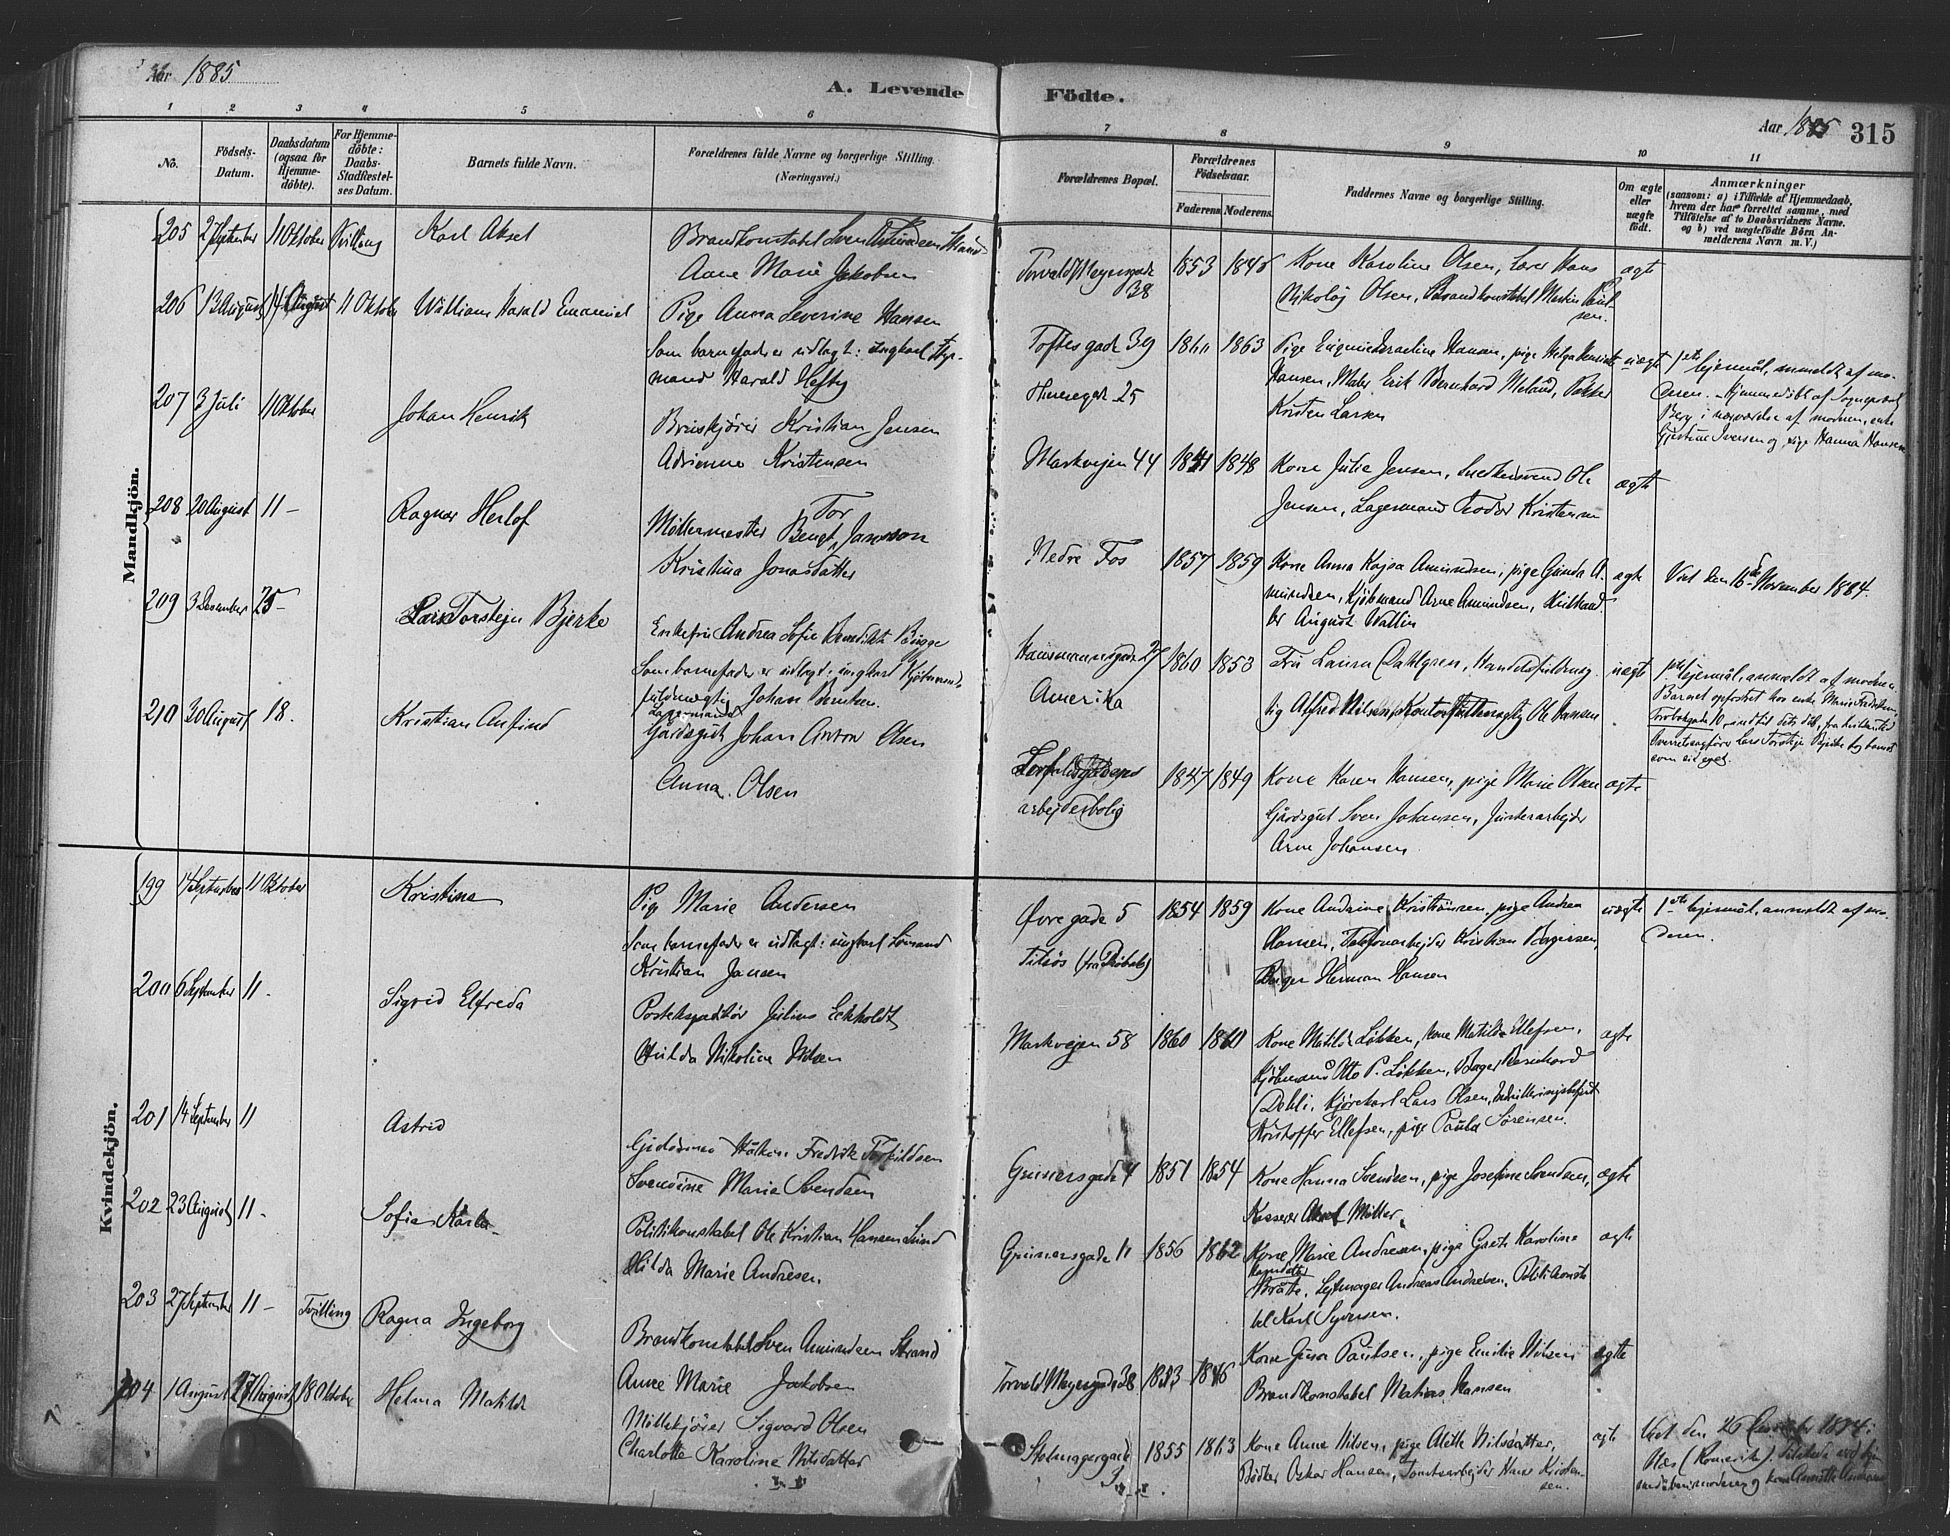 Aar 1885
A. Levende Födte.
Aar 1885 315
1 2 3 4 5 6 7 8 9 10 11
No.
Födsels-Datum.
Daabsdatum (ogsaa for Hjemme-döbte).
For Hjemme-döbte: Daabs-Stadfæstel-ses Datum.
Barnets fulde Navn.
Forældrenes fulde Navne og borgerlige Stilling.
(Næringsvei.)
Forældrenes Bopæl.
Forældrenes Födselsaar.
Faderens Moderens.
Faddernes Navne og borgerlige Stilling.
Om ægte eller uægte födt.
Anmærkninger
(saasom: a) i Tilfælde af Hjemmedaab, hvem der har forrettet samme, med Tilföielse af to Daabsvidners Navne. og b) ved uægtefödte Börn An-melderens Navn m. V.)
Mandkjön.
205 27 September 11 Oktober Tvilling Karl Aksel
Brandkonstabel Sven Amundsen Strand
Anne Marie Jakobsen
Torvald Meyersgade 38 1853 1846
Kone Karoline Olsen, Lærer Hans
Nikolaj Olsen, Brandkonstabel Martin Paul-
sen.
ægte
206 13 August 14 August 11 Oktober William Harald Emanuel
Pige Anna Severine Hansen
Som barnefader er udlagt: ungkarl Styr-
mand Harald Hefty
Toftesgade 39 1860 1863
Hansen, Maler Erik Bernhard
Korsten Larsen
uægte
1ste lejermål, anmeldt af mo-
deren. Hjemmedöbt af Sognepræst
Berg i nærværelse af moderen, enke
Iversen og pige Hanna Hansen
207 3 Juli 11 Oktober Johan Henrik
Kristian Jensen
Kristensen
Markvejen 44 1841 1848
Kone Julie Jensen, Snedkersvend Ole
Jensen, Lagermand Teodor Kristensen
ægte
208 20 August 11 — Ragnar Herlof
Møllermester Bengt Tor Jansson
Kristina Jonasdatter
Nedre Fos 1857 1859
Kone Anna Kajsa Amundsen, pige Gunda A-
mundsen, Kjøbmand Arne Amundsen,
August Wallin
ægte
Vict den 16de November 1884.
209 3 Desember 25 — Lars Torstejn Bjerke
Enkefru Andrea Sofie Benedikte Bugge
Som barnefader er udlagt: ungkarl Kjøbmands-
fuldmægtig Johan
Hausmannsgade 27 1860 1853
Amerika
Fru Laura Dahlgren, Handelsfuldmæg-
tig Alfred Nilsen, Kontorfuldmægtig Ole Hansen
uægte
1ste lejermål, anmeldt af moderen.
210 30 August 18. Kristian Anfind
Lagermand
Gårdsgut Johan Anton Olsen
Anna Olsen
arbejderbolig 1847 1849
Kone Karen Hansen, pige Marie Olsen
Gårdsgut Sven Johansen, Junterarbejder
Arne Johansen
ægte
Kvindekjön.
199 14 September 11 Oktober Kristina
Pige Marie Andersen
Som barnefader er udlagt: ungkarl Sömand
Kristian Jansen
Øvregade 5 1854 1859
Kone Andrine Kristiansen, pige Andrea
Hansen, Kristian Borgersen,
Bager Herman Hansen
uægte
1ste lejermål, anmeldt af mo-
deren.
200 6 September 11 - Sigrid Elfreda
Postekspeditör Julius Eckholdt
Hulda Nikoline Nilsen
Markvejen 58 1860 1860
Kone Matilde Løkken, kone Matilde Ellefsen,
Kjøbmand Otto P. Løkken, Bager Bernhard
Dehli, Kjørekarl Lars Olsen,
Kristoffer Ellefsen, pige Paula Sørensen.
ægte
201 14 September 11 Astrid
Håkon Fredrik Torkildsen
Svendine Marie Svendsen
Grünersgade 4 1851 1854
Kone Hanna Svendsen, pige Josefine Svendsen,
Kasserer Aksel Møller
ægte
202 23 August 11 - Sofie Karla
Politikonstabel Ole Kristian Hansen Lund
Hilda Marie Andresen.
Grünersgade 11 1856 1862
Kone Marie Andresen, pige Grete Karoline
Bråte, Andreas Andresen, Politikonsta-
bel Karl Syversen.
ægte
203 27 September 11 — Tvilling Ragna Ingeborg
Brandkonstabel Sven Amundsen Strand
Anne Marie Jakobsen
Torvald Meyersgade 38 1853 1846
Kone Gina Paulsen, pige Emilie Nilsen
Brandkonstabel Matias Hansen
ægte
204 1 August 27 August 18 Oktober Helma Matilde
Møllekjører Sigvard Olsen
Charlotte Karoline Nilsdatter
Stolmagergade 1855 1863
Kone Anne Nilsen, pige Alette Nilsdatter,
Bødker Oskar Hansen, Tomtearbejder Hans Kristen-
sen.
ægte
Vict den 26 1884 i
Næs (Romerike).